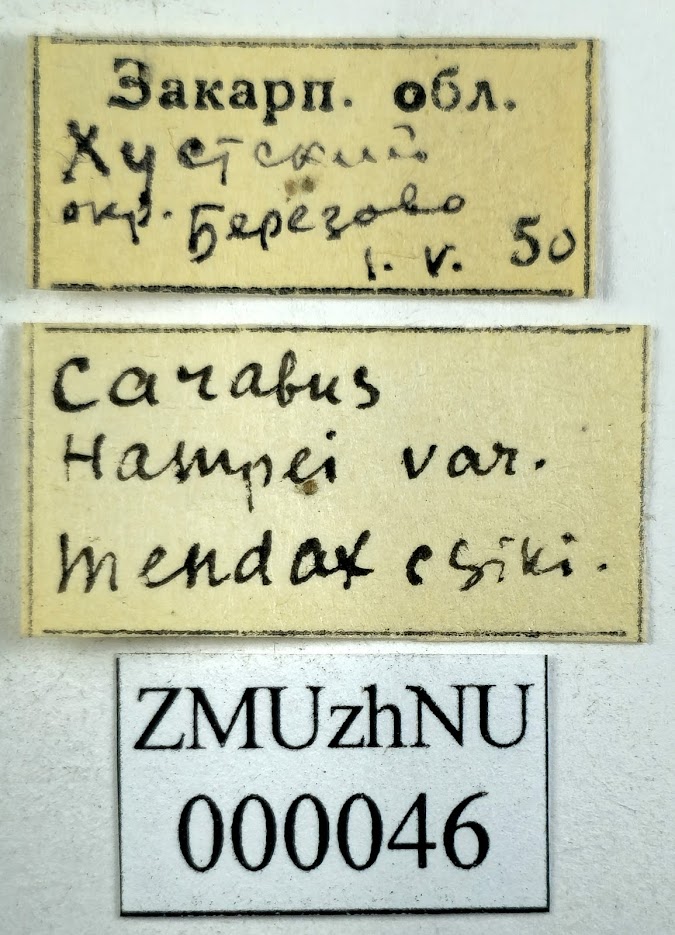 Закарп. обл.
Хустский
окр. Березово
1. V. 50
Carabus
Hampei var.
mendax csiki.
ZMUzhNU
000046